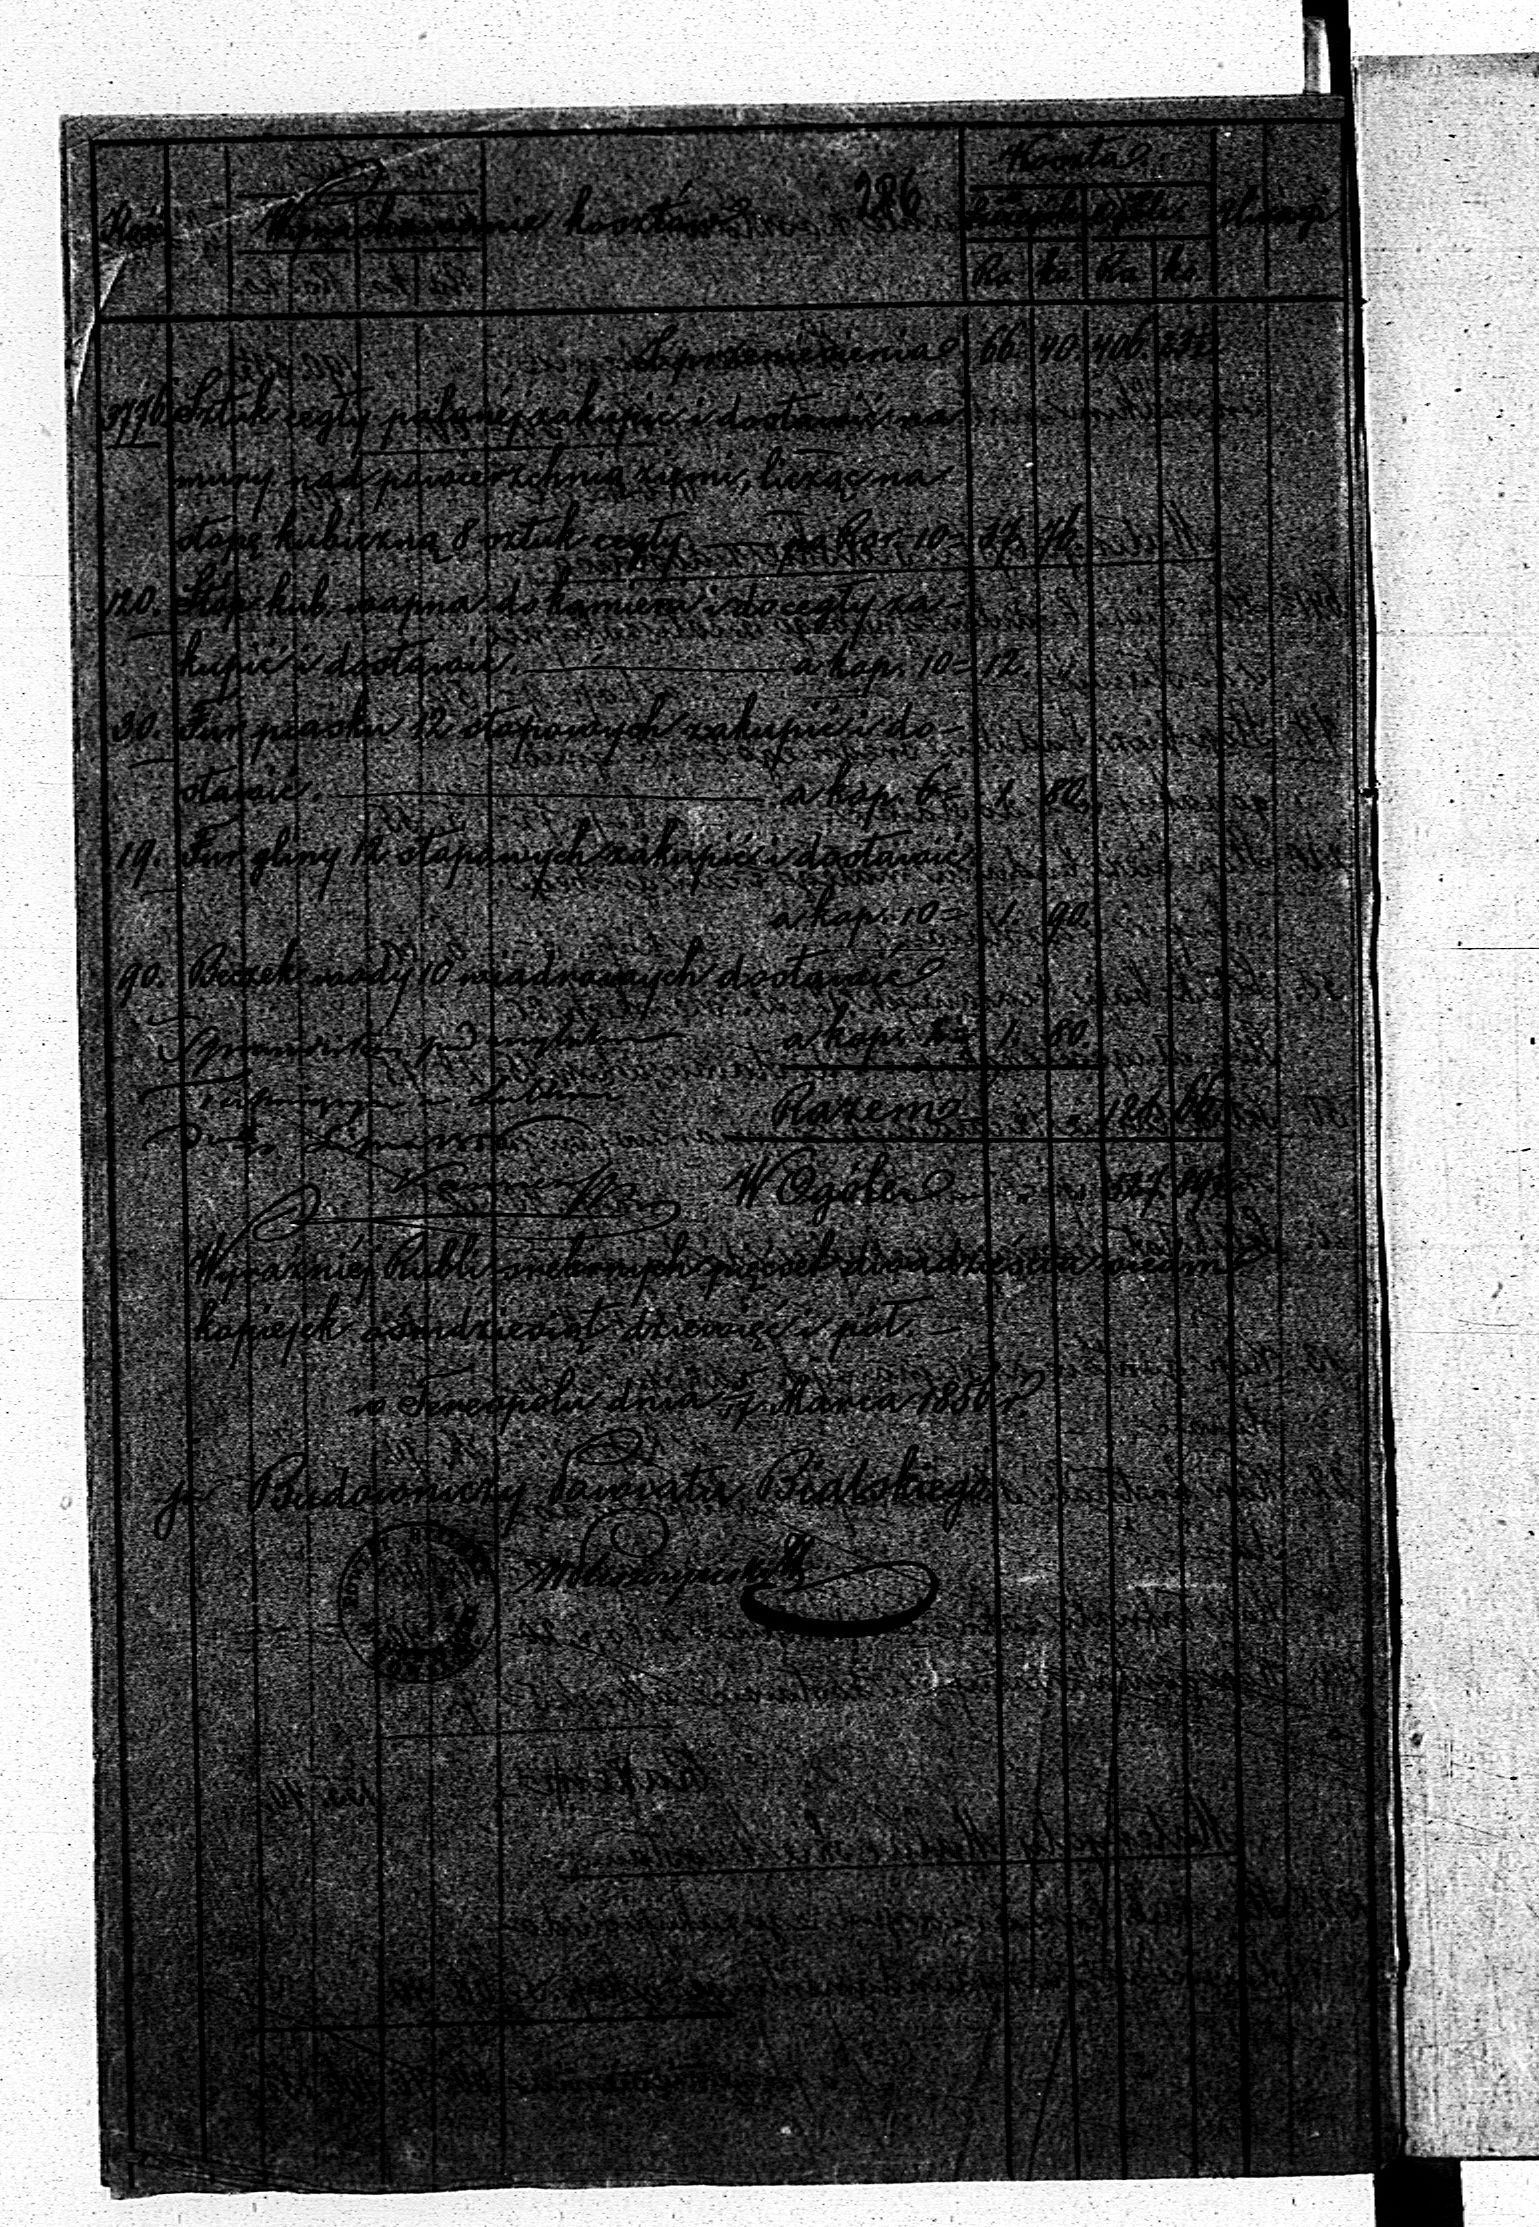 Ilość Wyrachowanie kosztów 286 Koszta Uwagi
Szczegół. Ogółu
Rs ko Rs ko
Z przeniesienia 66. 40 406. 23½
3776. Sztuk cegły palonéj zakupić i dostawić na
mury nad powierzchnią ziemi, licząc na
stopę kubiczną 8 sztuk cegły a Rsr. 10 = 37. 76.
120. Stóp kub. wapna do kamieni i do cegły za-
kupić i dostawić. a kop. 10 = 12.
30. Fur piasku 12 stopowych zakupić i do-
stawić. a kop. 6 = 1. 80.
19. Fur gliny 12 stopowych zakupić i dostawić
a kop. 10 = 1. 90.
90. Beczek wody 10 wiadrowych dostawić
a kop. 2 = 1. 80.
Razem 121. 66.
W Ogóle 527. 89½
Wyraźniéj Rubli srebrnych pięćset dwadzieścia siedm
kopiejek ośmdziesiąt dziewięć i pół. –
w Terespolu dnia 5/17 Marca 1856 r.
Budowniczy Powiatu Bialskiego